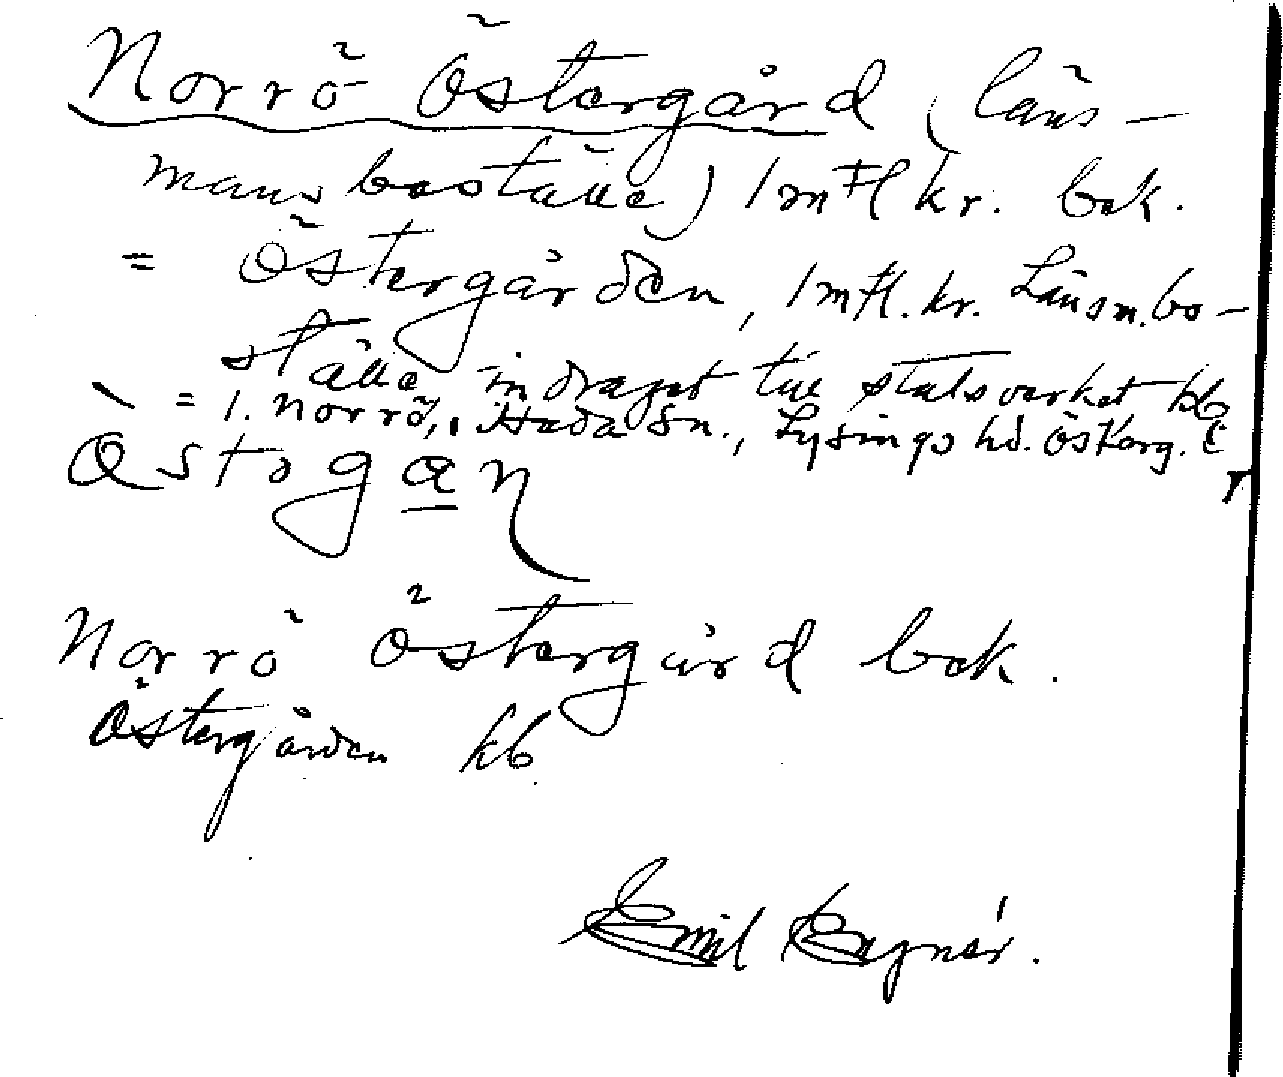 Norrö Östergård (läns-
mansboställe) 1 mtl kr. bek.
= Östergården, 1 mtl. kr. Länsm. bo-
ställe, indraget till statsverket kb
= 1. Norrö, Heda sn., Lysings hd. Österg.
Norrö Östergård bek.
Östergården kb
Emil